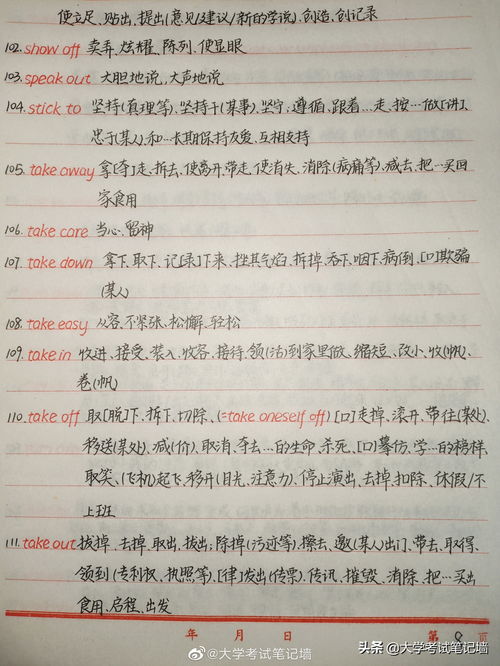 使立足、贴出、提出(意见/建议/新的学说)、创造、创记录
102. show off 卖弄、炫耀、陈列、使显眼
103. speak out 大胆地说,大声地说
104. stick to 坚持(真理等)、坚持干(某事)、坚守;遵循、跟着…走、按…做[讲]、
忠于(某人)、和…长期保持友爱、互相支持
105. take away 拿[夺]走、拆去、使离开、带走、使消失、消除(病痛等)、减去、把…买回
家食用
106. take care 当心、留神
107. take down 拿下、取下、记[录]下来、挫其气焰、拆掉、吞下、咽下、病(倒)、[口]欺骗
(某人)
108. take easy 从容、不紧张、松懈、轻松
109. take in 收进、接受、装入、收容、接待、领(活)到家里做、缩短、改小、收(帆)、
卷(帆)
110. take off 取[脱]下、拆下、切除、(=take oneself off)[口]走掉、滚开、带往(某处)、
移送(某处)、减(价)、取消、夺去…的生命、杀死、[口]摹仿、学…的榜样、
取笑、(飞机)起飞、移开(目光、注意力)、停止演出、去掉、扣除、休假/不
上班
111. take out 拔掉、去掉、取出、拔出、除掉(污迹等)、擦去、邀(某人)出门、带去、取得、
领到(专利权、执照等)、[律]发出(传票)、传讯、摧毁、消除、把…买出
食用、启程、出发
年 月 日 第 8 页
@大学考试笔记墙
头条 @大学考试笔记墙